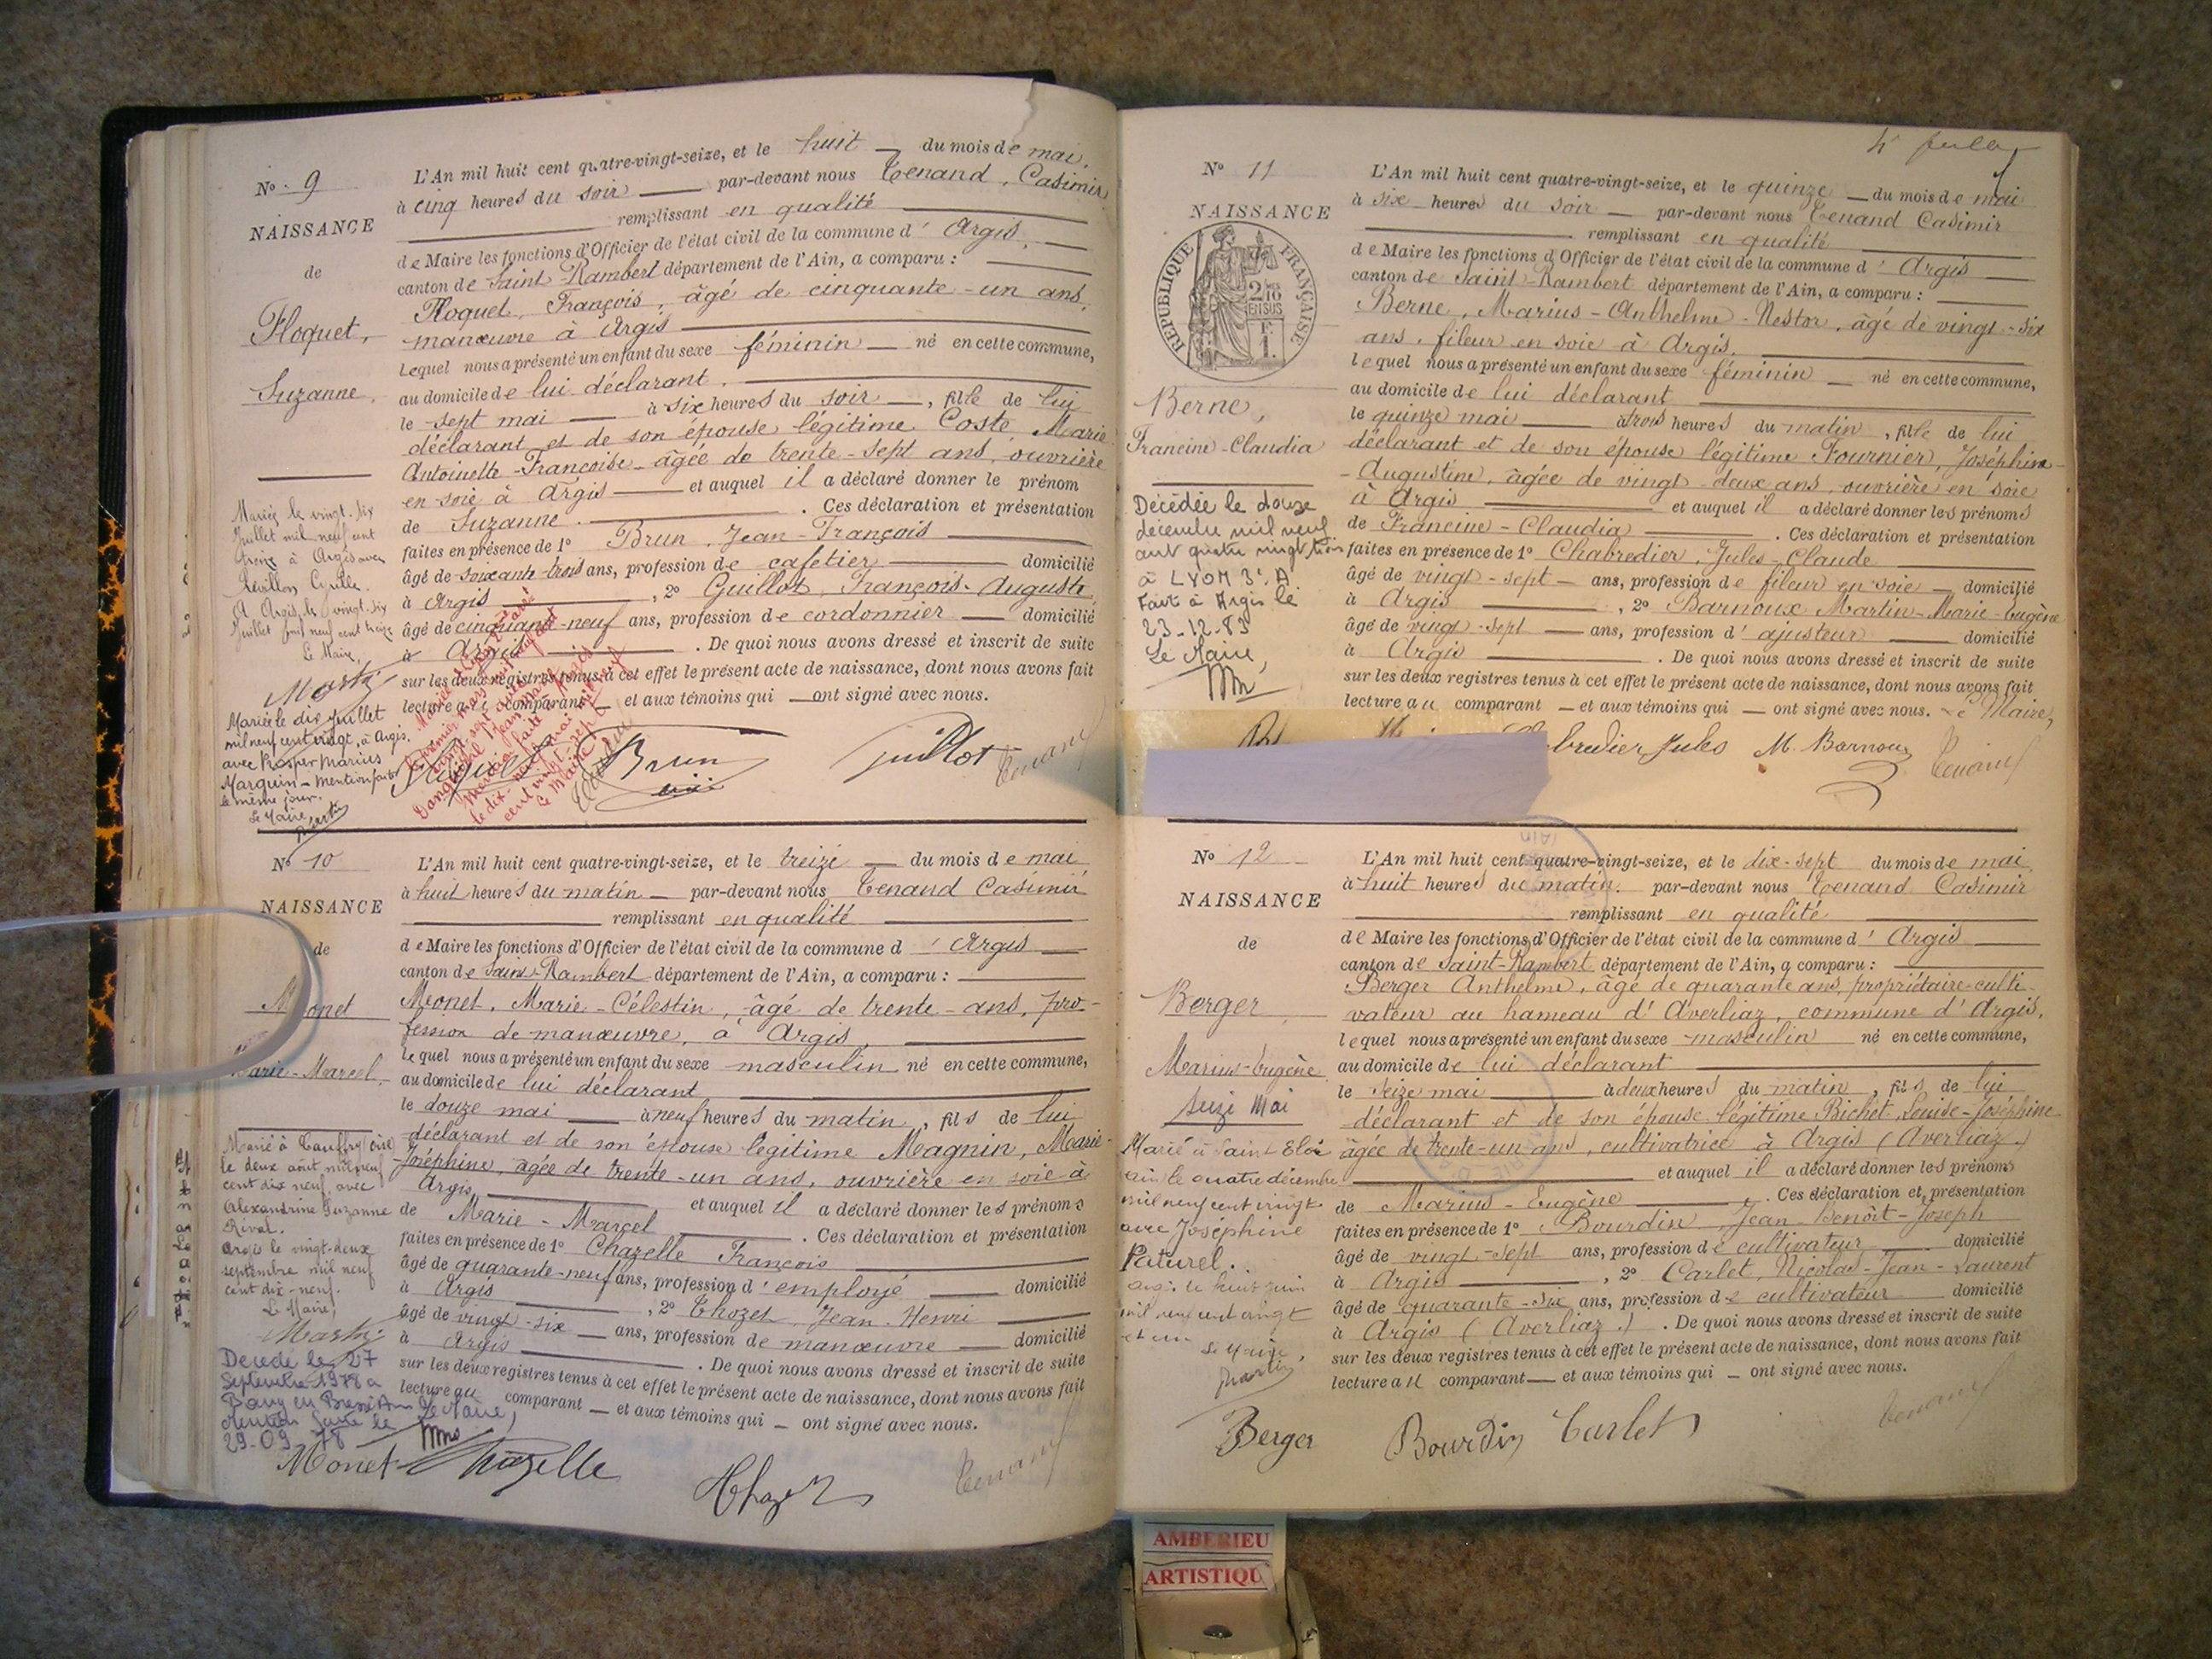 N° 9
NAISSANCE
de
Floquet,
Suzanne.
L'An mil huit cent quatre-vingt-seize, et le huit du mois de mai,
à cinq heures du soir par-devant nous Tenand, Casimir
remplissant en qualité
de Maire les fonctions d'Officier de l'état civil de la commune d'Argis,
canton de Saint-Rambert département de l'Ain, a comparu :
Floquet, François, âgé de cinquante-un ans,
manœuvre à Argis
Lequel nous a présenté un enfant du sexe féminin né en cette commune,
au domicile de lui déclarant.
le sept mai à six heures du soir, fille de lui
déclarant et de son épouse légitime Coste, Marie
Antoinette-Françoise âgée de trente-sept ans, ouvrière
en soie à Argis et auquel il a déclaré donner le prénom
de Suzanne. Ces déclaration et présentation
faites en présence de 1° Brun, Jean-François
âgé de soixante-trois ans, profession de cafetier domicilié
à Argis, 2° Guillot, François-Auguste
âgé de cinquante-neuf ans, profession de cordonnier domicilié
à Argis. De quoi nous avons dressé et inscrit de suite
sur les deux registres tenus à cet effet le présent acte de naissance, dont nous avons fait
lecture au comparant et aux témoins qui ont signé avec nous.
Mariée le vingt-six
Juillet mil neuf cent
treize à Argis avec
Révillon Cyrille.
A Argis, le vingt-six
Juillet mil neuf cent treize
Le Maire,
Martin
Mariée le dix Juillet
mil neuf cent vingt, à Argis,
avec Prosper Marius
Marquin - Mention faite
le même jour.
Le Maire
Martin
Floquet Brun Guillot Tenand
N° 10
NAISSANCE
de
Monet
Marie-Marcel,
L'An mil huit cent quatre-vingt-seize, et le treize du mois de mai
à huit heures du matin par-devant nous Tenand Casimir
remplissant en qualité
de Maire les fonctions d'Officier de l'état civil de la commune d'Argis
canton de Saint-Rambert département de l'Ain, a comparu :
Monet, Marie-Célestin, âgé de trente-ans, pro-
fession de manœuvre, à Argis,
lequel nous a présenté un enfant du sexe masculin né en cette commune,
au domicile de lui déclarant
le douze mai à neuf heures du matin, fils de lui
déclarant et de son épouse légitime Magnin, Marie-
Joséphine, âgée de trente-un ans, ouvrière en soie à
Argis, et auquel il a déclaré donner les prénoms
de Marie-Marcel. Ces déclaration et présentation
faites en présence de 1° Chazelle François
âgé de quarante-neuf ans, profession d'employé domicilié
à Argis, 2° Thozet, Jean-Henri
âgé de vingt-six ans, profession de manœuvre domicilié
à Argis. De quoi nous avons dressé et inscrit de suite
sur les deux registres tenus à cet effet le présent acte de naissance, dont nous avons fait
lecture au comparant et aux témoins qui ont signé avec nous.
Le Maire,
le deux août mil neuf
cent dix neuf, avec
Alexandrine Suzanne
Rival.
Argis le vingt-deux
septembre mil neuf
cent dix-neuf.
Le Maire,
Martin
Décédé le 27
Septembre 1978 a
Bourg en Bresse Ain
Mention faite le
29-09-78
Le Maire,
Monet Chazelle Thozet Tenand
N° 11
NAISSANCE
RÉPUBLIQUE FRANÇAISE
2/10 EN SUS
1 F.
Berne,
Francine-Claudia
L'An mil huit cent quatre-vingt-seize, et le quinze du mois de mai
à six heures du soir par-devant nous Tenand Casimir
remplissant en qualité
de Maire les fonctions d'Officier de l'état civil de la commune d'Argis
canton de Saint-Rambert département de l'Ain, a comparu :
Berne, Marius-Anthelme-Nestor, âgé de vingt-six
ans, fileur en soie à Argis,
lequel nous a présenté un enfant du sexe féminin né en cette commune,
au domicile de lui déclarant
le quinze mai à trois heures du matin, fille de lui
déclarant et de son épouse légitime Fournier, Joséphine-
-Augustine, âgée de vingt-deux ans, ouvrière en soie
à Argis et auquel il a déclaré donner les prénoms
de Francine-Claudia. Ces déclaration et présentation
faites en présence de 1° Chabredier, Jules-Claude
âgé de vingt-sept ans, profession de fileur en soie domicilié
à Argis, 2° Barnoux Martin-Marie-Eugène
âgé de vingt-sept ans, profession d'ajusteur domicilié
à Argis. De quoi nous avons dressé et inscrit de suite
sur les deux registres tenus à cet effet le présent acte de naissance, dont nous avons fait
lecture au comparant et aux témoins qui ont signé avec nous. Le Maire,
Décédée le douze
décembre mil neuf
cent quatre vingt trois
à LYON 3e A
Fait à Argis le
23-12-83
Le Maire,
Chabredier Jules M. Barnoux Tenand
N° 12
NAISSANCE
de
Berger
Marius-Eugène
seize Mai
L'An mil huit cent quatre-vingt-seize, et le dix-sept du mois de mai
à huit heures du matin. par-devant nous Tenand Casimir
remplissant en qualité
de Maire les fonctions d'Officier de l'état civil de la commune d'Argis
canton de Saint-Rambert département de l'Ain, a comparu :
Berger Anthelme, âgé de quarante ans, propriétaire-culti-
vateur au hameau d'Averliaz, commune d'Argis,
lequel nous a présenté un enfant du sexe masculin né en cette commune,
au domicile de lui déclarant
le seize mai à deux heures du matin, fils de lui
déclarant et de son épouse légitime Richet Louise-Joséphine
âgée de trente-un ans, cultivatrice à Argis (Averliaz.)
et auquel il a déclaré donner les prénoms
de Marius-Eugène. Ces déclaration et présentation
faites en présence de 1° Bourdin, Jean-Benoît-Joseph
âgé de vingt-sept ans, profession de cultivateur domicilié
à Argis, 2° Carlet, Nicolas-Jean-Laurent
âgé de quarante-six ans, profession de cultivateur domicilié
à Argis (Averliaz.). De quoi nous avons dressé et inscrit de suite
sur les deux registres tenus à cet effet le présent acte de naissance, dont nous avons fait
lecture au comparant et aux témoins qui ont signé avec nous.
Marié à Saint Eloi
ain le quatre décembre
mil neuf cent vingt
avec Joséphine
Paturel.
Argis le huit juin
mil neuf cent vingt
et un
Le Maire,
Martin
Berger Bourdin Carlet Tenand
AMBERIEU
ARTISTIQU